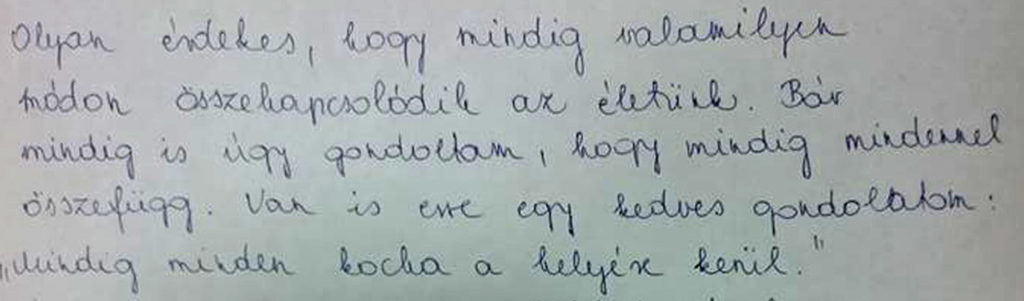 Olyan érdekes, hogy mindig valamilyen
módon összekapcsolódik az életünk. Bár
mindig is úgy gondoltam, hogy mindig mindennel
összefügg. Van is erre egy kedves gondolatom:
„Mindig minden kocka a helyére kerül."